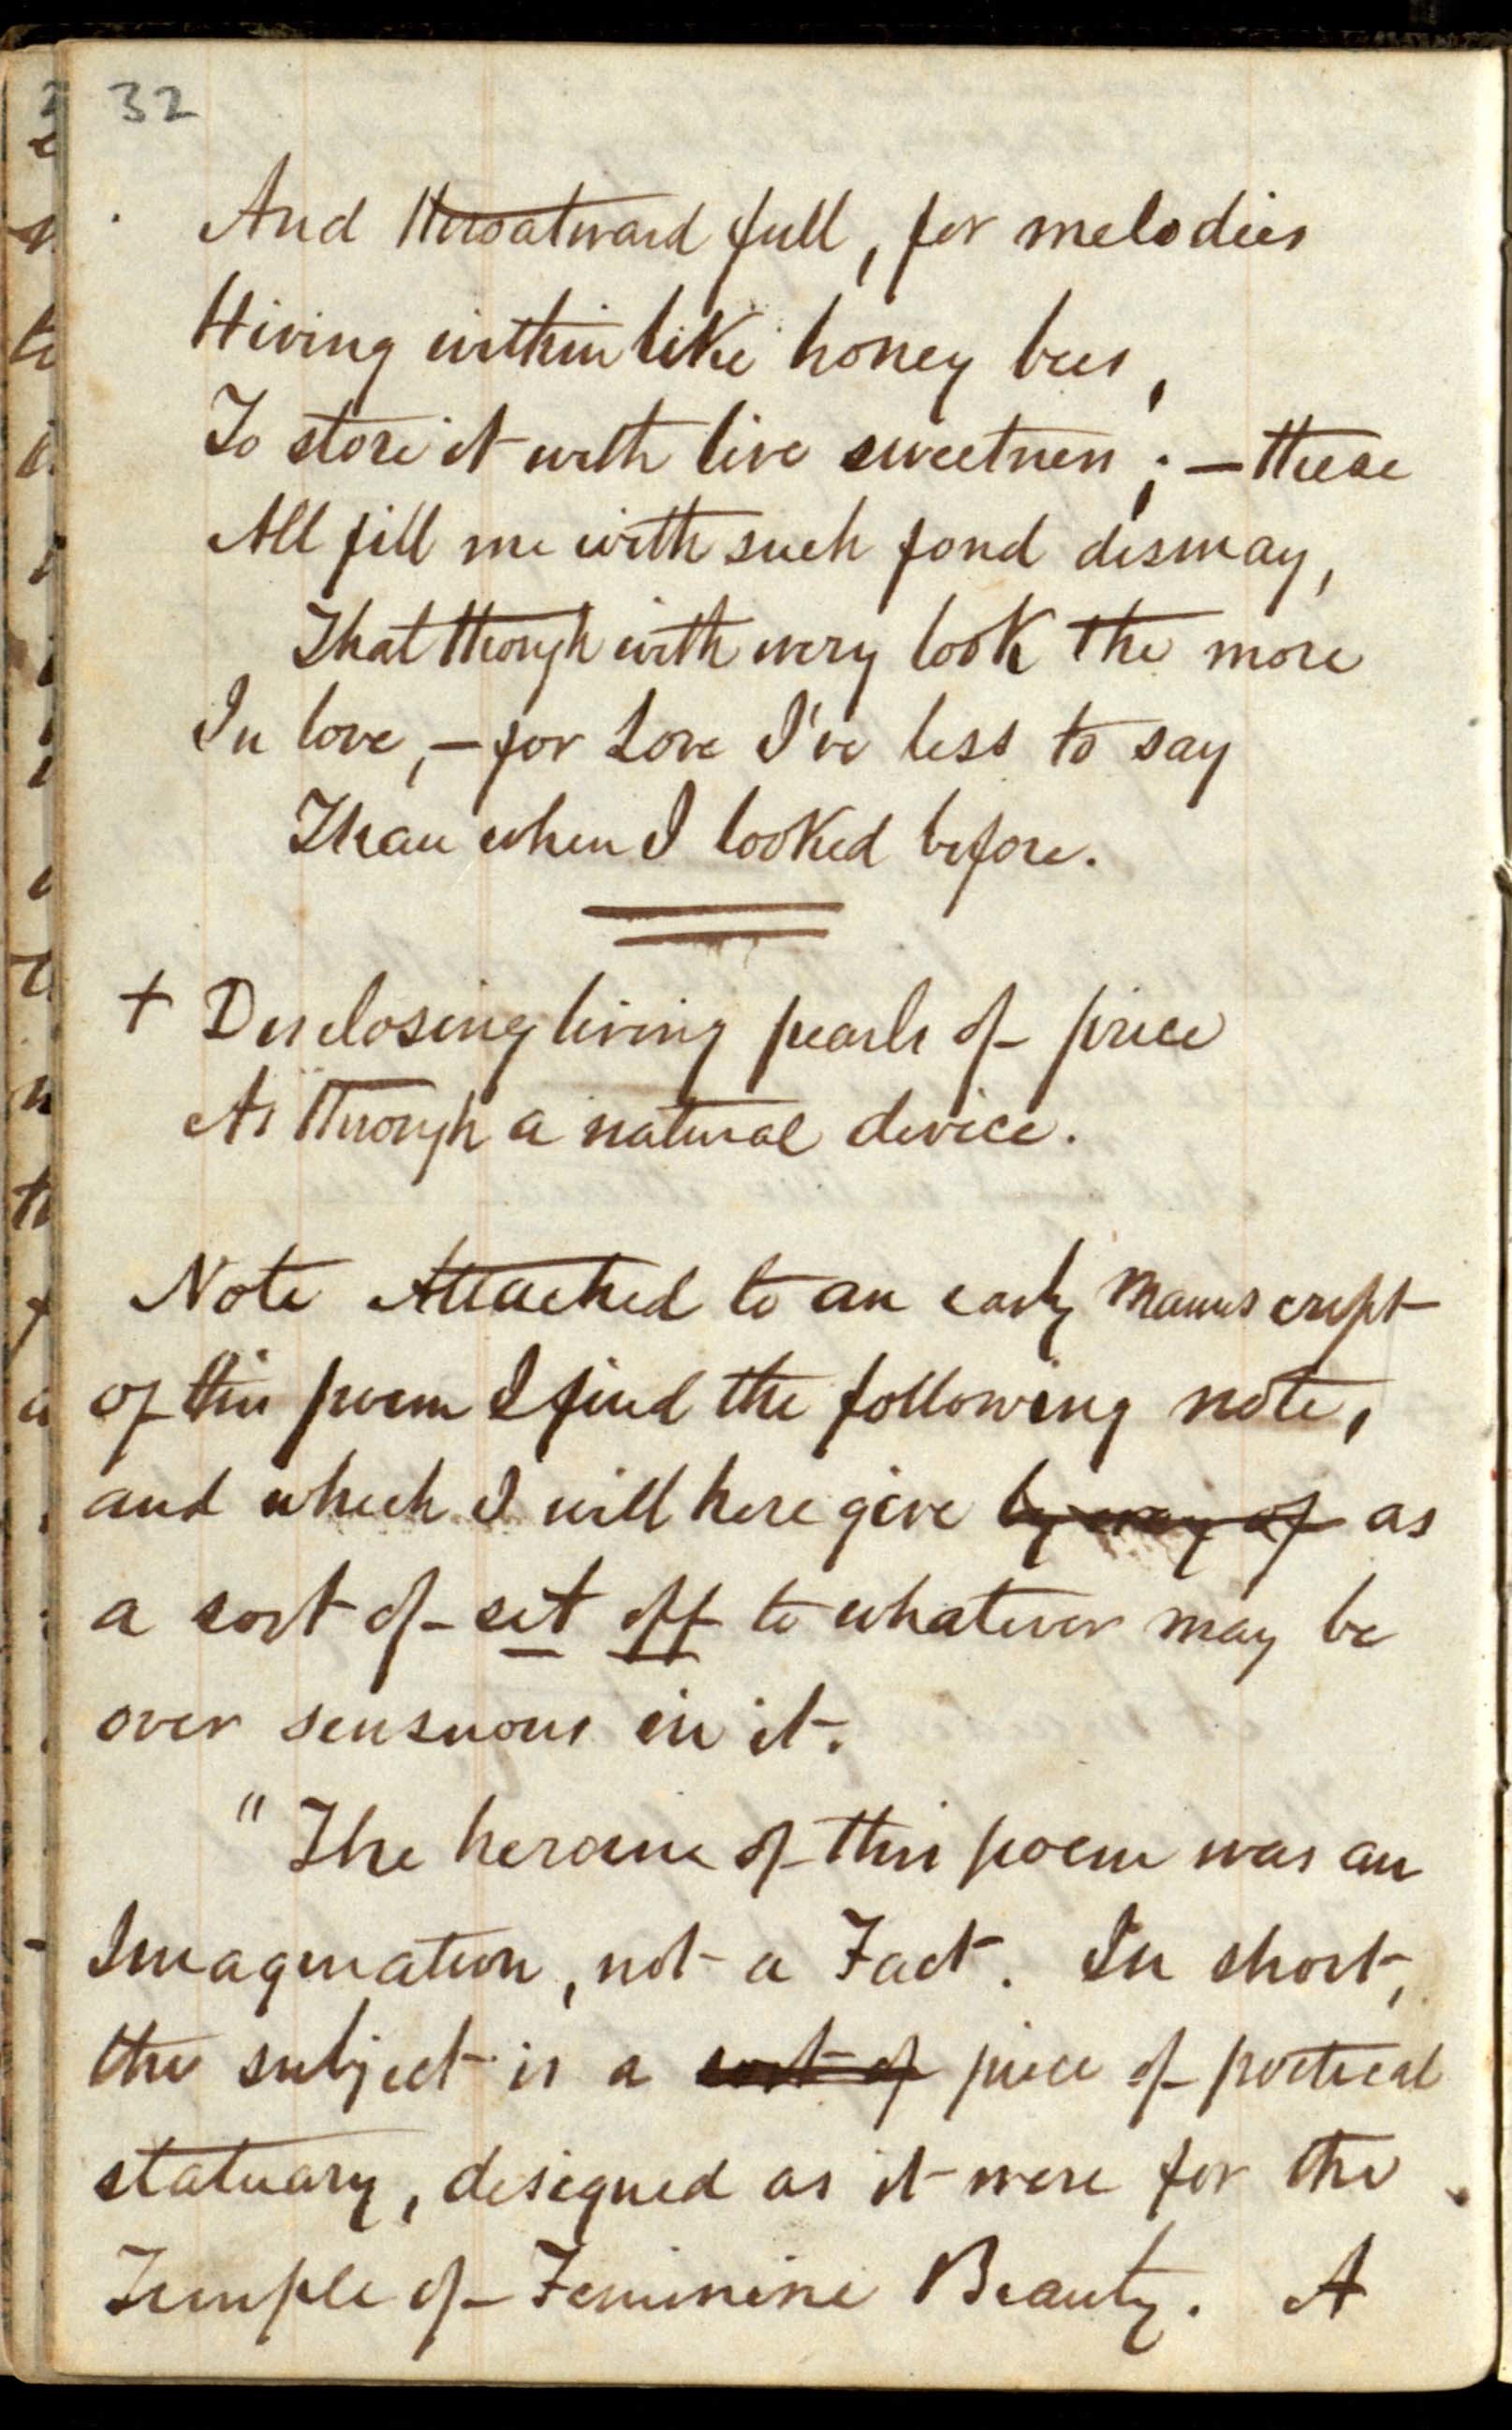 32
And throatward full, for melodies
Hiving within like honey bees,
To store it with live sweetness; — these
All fill me with such fond dismay,
That though with every look the more
In love, — for Love I've less to say
Than when I looked before.
+ Disclosing living pearls of price
As through a natural device.
Note Attached to an early Manuscript
of this poem I find the following note,
and which I will here give by way of as
a sort of set off to whatever may be
over sensuous in it.
" The heroine of this poem was an
Imagination, not a Fact. In short,
the subject is a sort of piece of poetical
statuary, designed as it were for the
Temple of Feminine Beauty. A